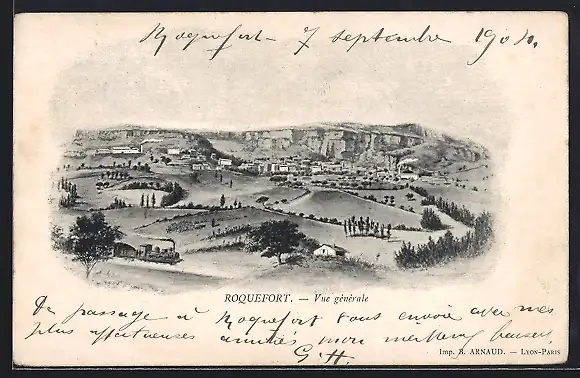 Roquefort - 7 septembre 1904.
ROQUEFORT. — Vue générale
De passage à Roquefort vous envoie avec mes
plus affectueuses amitiés mon meilleur baiser,
G H
Imp. B. ARNAUD. — LYON-PARIS